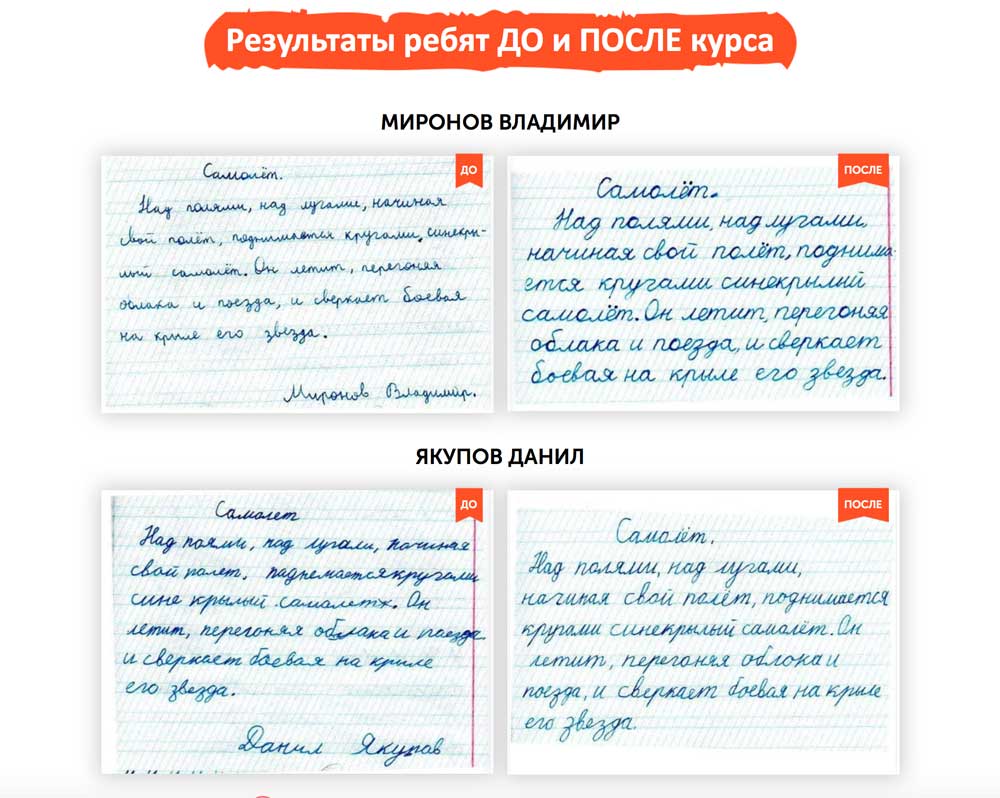 Результаты ребят ДО и ПОСЛЕ курса
МИРОНОВ ВЛАДИМИР
ДО
Самолёт.
Над полями, над лугами, начиная
свой полёт, поднимается кругами, синекры-
лый самолёт. Он летит, перегоняя
облака и поезда, и сверкает боевая
на крыле его звезда.
Миронов Владимир.
ПОСЛЕ
Самолёт.
Над полями, над лугами,
начиная свой полёт, поднима-
ется кругами синекрылый
самолёт. Он летит, перегоняя
облака и поезда, и сверкает
боевая на крыле его звезда.
ЯКУПОВ ДАНИЛ
ДО
Самолет
Над поями, над лугали, начиная
свой полет, паднемается кругами
сине крылый самалетх. Он
летит, перегоняя облака и поезда
и сверкает боевая на криле
его звезда.
Данил Якупов
ПОСЛЕ
Самолёт.
Над полями, над лугами,
начиная свой полёт, поднимается
кругами синекрылый самолёт. Он
летит, перегоняя облока и
поезда, и сверкает боевая на крыле
его звезда.